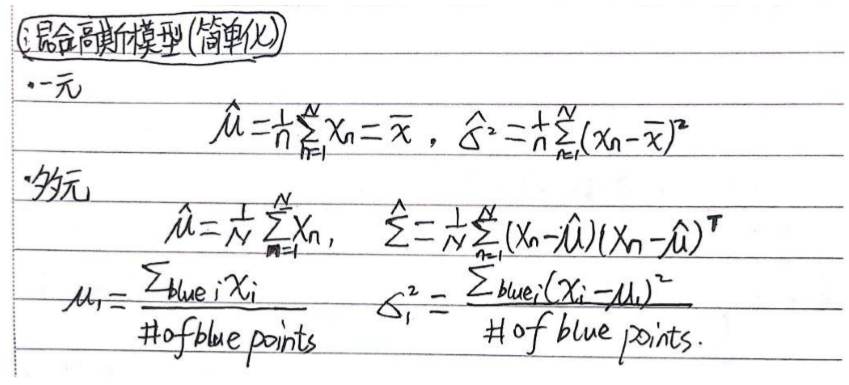 混合高斯模型(简单化)
·一元
μ̂ = 1/n ∑_{n=1}^{N} xₙ = x̄ , σ̂² = 1/n ∑_{n=1}^{N} (xₙ - x̄)²
·多元
μ̂ = 1/N ∑_{n=1}^{N} xₙ, Σ̂ = 1/N ∑_{n=1}^{N} (xₙ - μ̂)(xₙ - μ̂)ᵀ
μ₁ = ∑blueᵢ xᵢ / # of blue points σ₁² = ∑blueᵢ (xᵢ - μ₁)² / # of blue points.